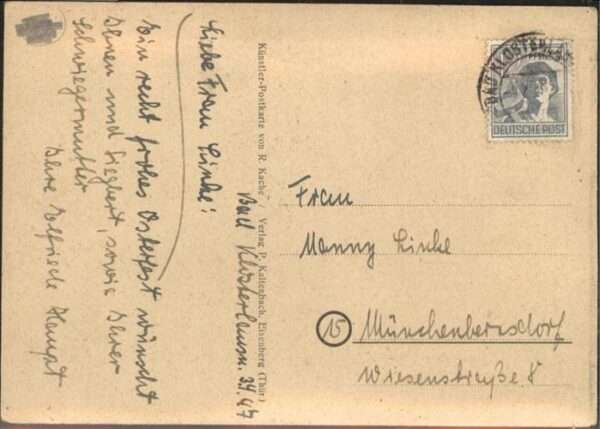 Bad Klosterlausn. 3.4.47
Liebe Frau Linke!
Ein recht frohes Osterfest wünscht
Ihnen und Siegbert, sowie Ihrer
Schwiegermutter
Ihre Elfriede Haupt
Künstler-Postkarte von R. Kache Verlag P. Kaltenbach, Eisenberg (Thür.)
BAD KLOSTERLAUS
DEUTSCHE POST
Frau
Nanny Linke
15 Münchenbernsdorf
Wiesenstraße 8